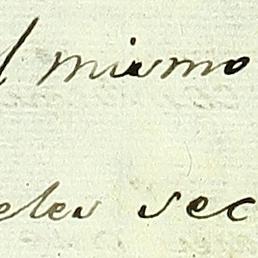 l mismo
eles sec